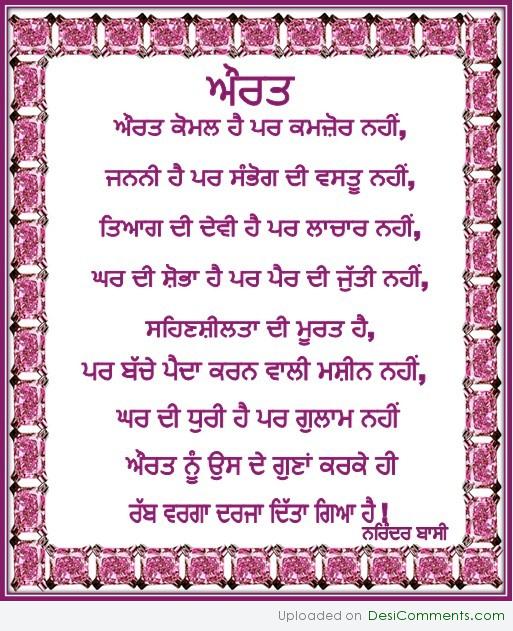 ਔਰਤ
ਔਰਤ ਕੋਮਲ ਹੈ ਪਰ ਕਮਜ਼ੋਰ ਨਹੀਂ,
ਜਨਨੀ ਹੈ ਪਰ ਸੰਭੋਗ ਦੀ ਵਸਤੂ ਨਹੀਂ,
ਤਿਆਗ ਦੀ ਦੇਵੀ ਹੈ ਪਰ ਲਾਚਾਰ ਨਹੀਂ,
ਘਰ ਦੀ ਸ਼ੋਭਾ ਹੈ ਪਰ ਪੈਰ ਦੀ ਜੁੱਤੀ ਨਹੀਂ,
ਸਹਿਣਸ਼ੀਲਤਾ ਦੀ ਮੂਰਤ ਹੈ,
ਪਰ ਬੱਚੇ ਪੈਦਾ ਕਰਨ ਵਾਲੀ ਮਸ਼ੀਨ ਨਹੀਂ,
ਘਰ ਦੀ ਧੁਰੀ ਹੈ ਪਰ ਗੁਲਾਮ ਨਹੀਂ
ਔਰਤ ਨੂੰ ਉਸ ਦੇ ਗੁਣਾਂ ਕਰਕੇ ਹੀ
ਰੱਬ ਵਰਗਾ ਦਰਜਾ ਦਿੱਤਾ ਗਿਆ ਹੈ!
ਨਰਿੰਦਰ ਬਾਸੀ
Uploaded on DesiComments.com